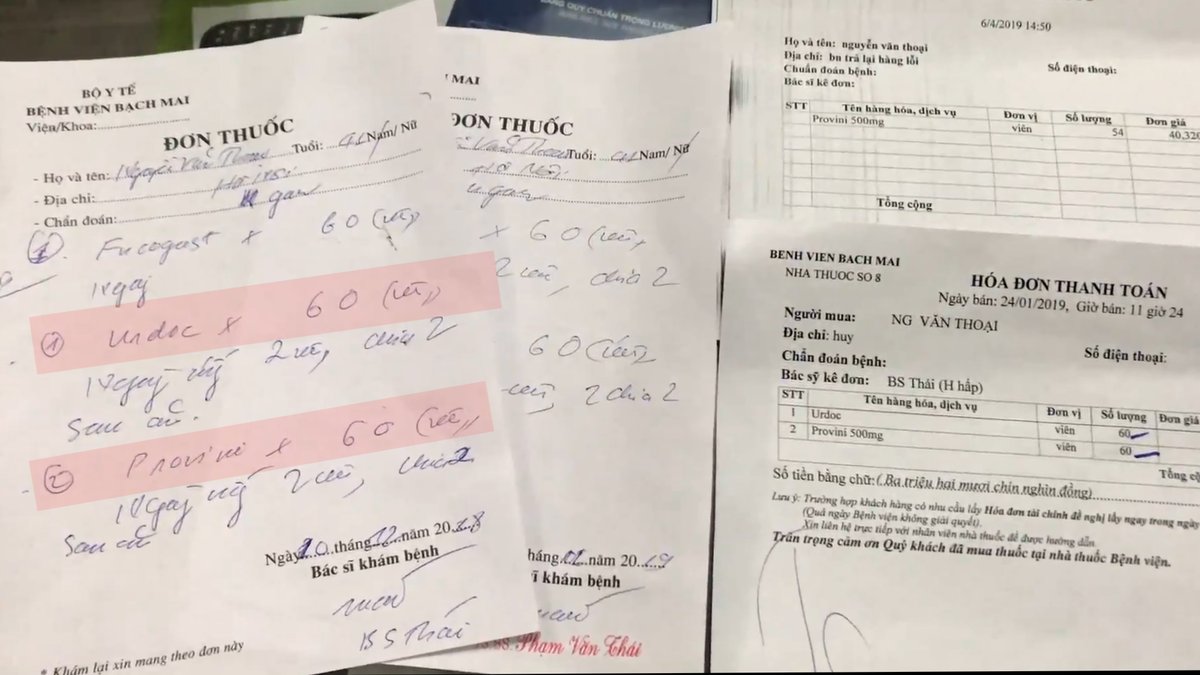 BỘ Y TẾ
BỆNH VIỆN BẠCH MAI
Viện/Khoa:
ĐƠN THUỐC
- Họ và tên: Nguyễn Văn Thoại Tuổi: Nam/ Nữ
- Địa chỉ: Hà Nội
- Chẩn đoán: gan
1. Fucogast x 60 (viên)
1 ngày
1 Urdoc x 60 (viên)
1 ngày uống 2 viên, chia 2
sau ăn.
2 Provini x 60 (viên)
1 ngày uống 2 viên, chia 2
sau ăn
Ngày 20 tháng 12 năm 2018
Bác sĩ khám bệnh
BS Thái
* Khám lại xin mang theo đơn này
MAI
ĐƠN THUỐC
Văn Thoại Tuổi: Nam/ Nữ
Hà Nội
gan
x 60 (viên,
2 viên, chia 2
60 (viên)
viên, 2 chia 2
tháng năm 2019
Bác sĩ khám bệnh
BS. Phạm Văn Thái
BẢNG QUY CHUẨN TRỌNG LƯỢNG
6/4/2019 14:50
Họ và tên: nguyễn văn thoại
Địa chỉ: bn trả lại hàng lỗi
Số điện thoại:
Chuẩn đoán bệnh:
Bác sĩ kê đơn:
STT Tên hàng hóa, dịch vụ Đơn vị Số lượng Đơn giá
Provini 500mg viên 54 40,320
Tổng cộng
BENH VIEN BACH MAI
NHA THUOC SO 8
HÓA ĐƠN THANH TOÁN
Ngày bán: 24/01/2019, Giờ bán: 11 giờ 24
Người mua: NG VĂN THOẠI
Địa chỉ: huy
Số điện thoại:
Chẩn đoán bệnh:
Bác sỹ kê đơn: BS Thái (H hấp)
STT Tên hàng hóa, dịch vụ Đơn vị Số lượng Đơn giá
1 Urdoc viên 60
2 Provini 500mg viên 60
Tổng cộ
Số tiền bằng chữ:( Ba triệu hai mươi chín nghìn đồng)
Lưu ý: Trường hợp khách hàng có nhu cầu lấy Hóa đơn tài chính đề nghị lấy ngay trong ngày
(Quá ngày Bệnh viện không giải quyết).
Xin liên hệ trực tiếp với nhân viên nhà thuốc để được hướng dẫn.
Trân trọng cảm ơn Quý khách đã mua thuốc tại nhà thuốc Bệnh viện.